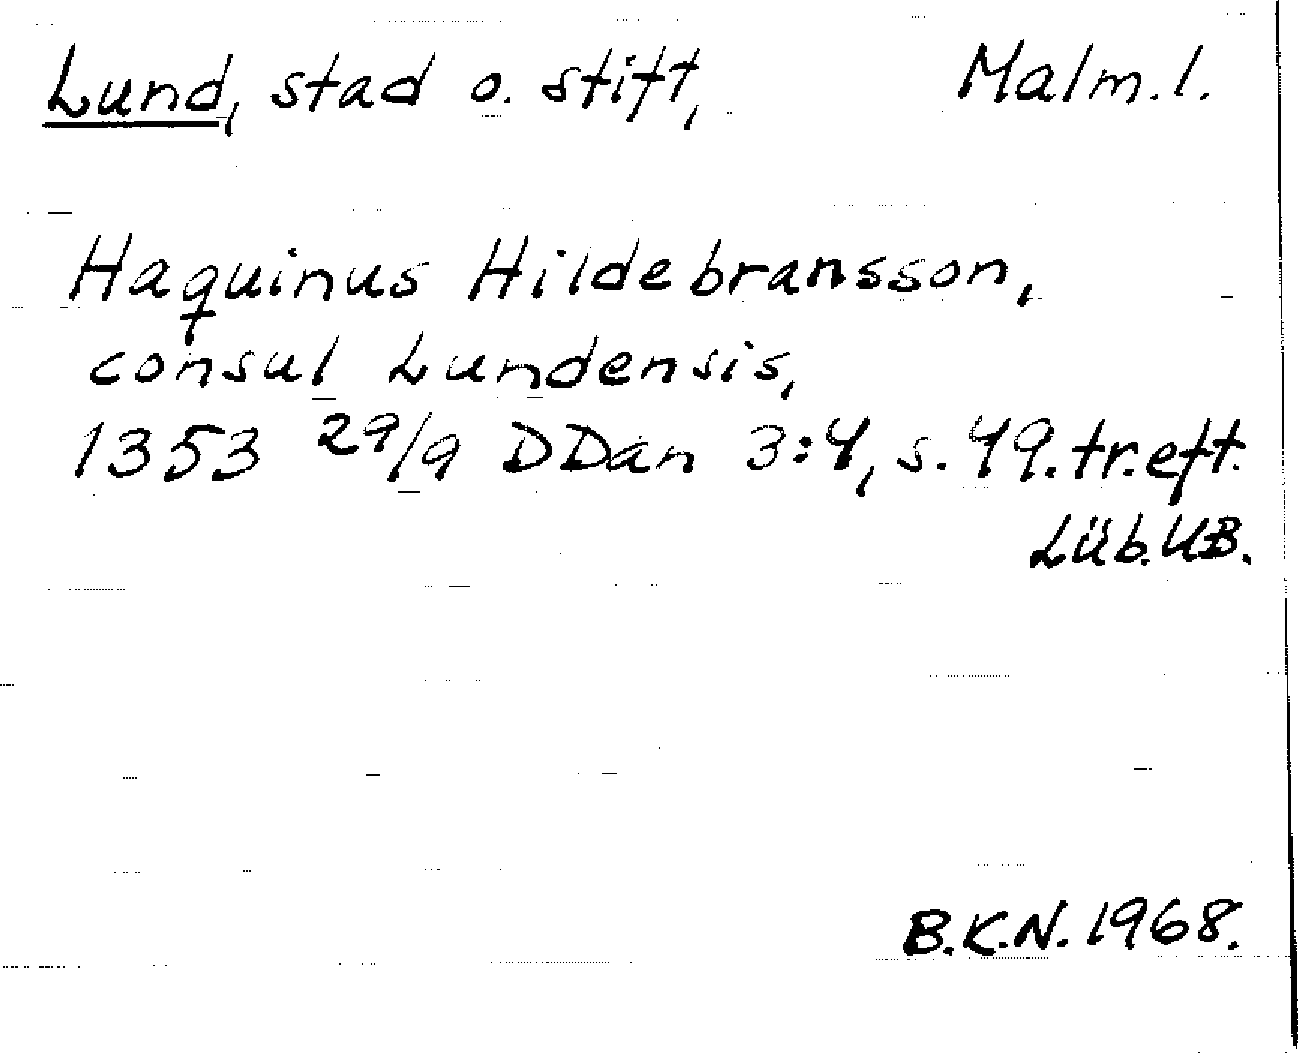 Lund, stad o. stift, Malm.l.
Haquinus Hildebransson,
consul Lundensis,
1353 29/9 DDan 3:4, s. 49. tr. eft.
Lüb. UB.
B.K.N. 1968.